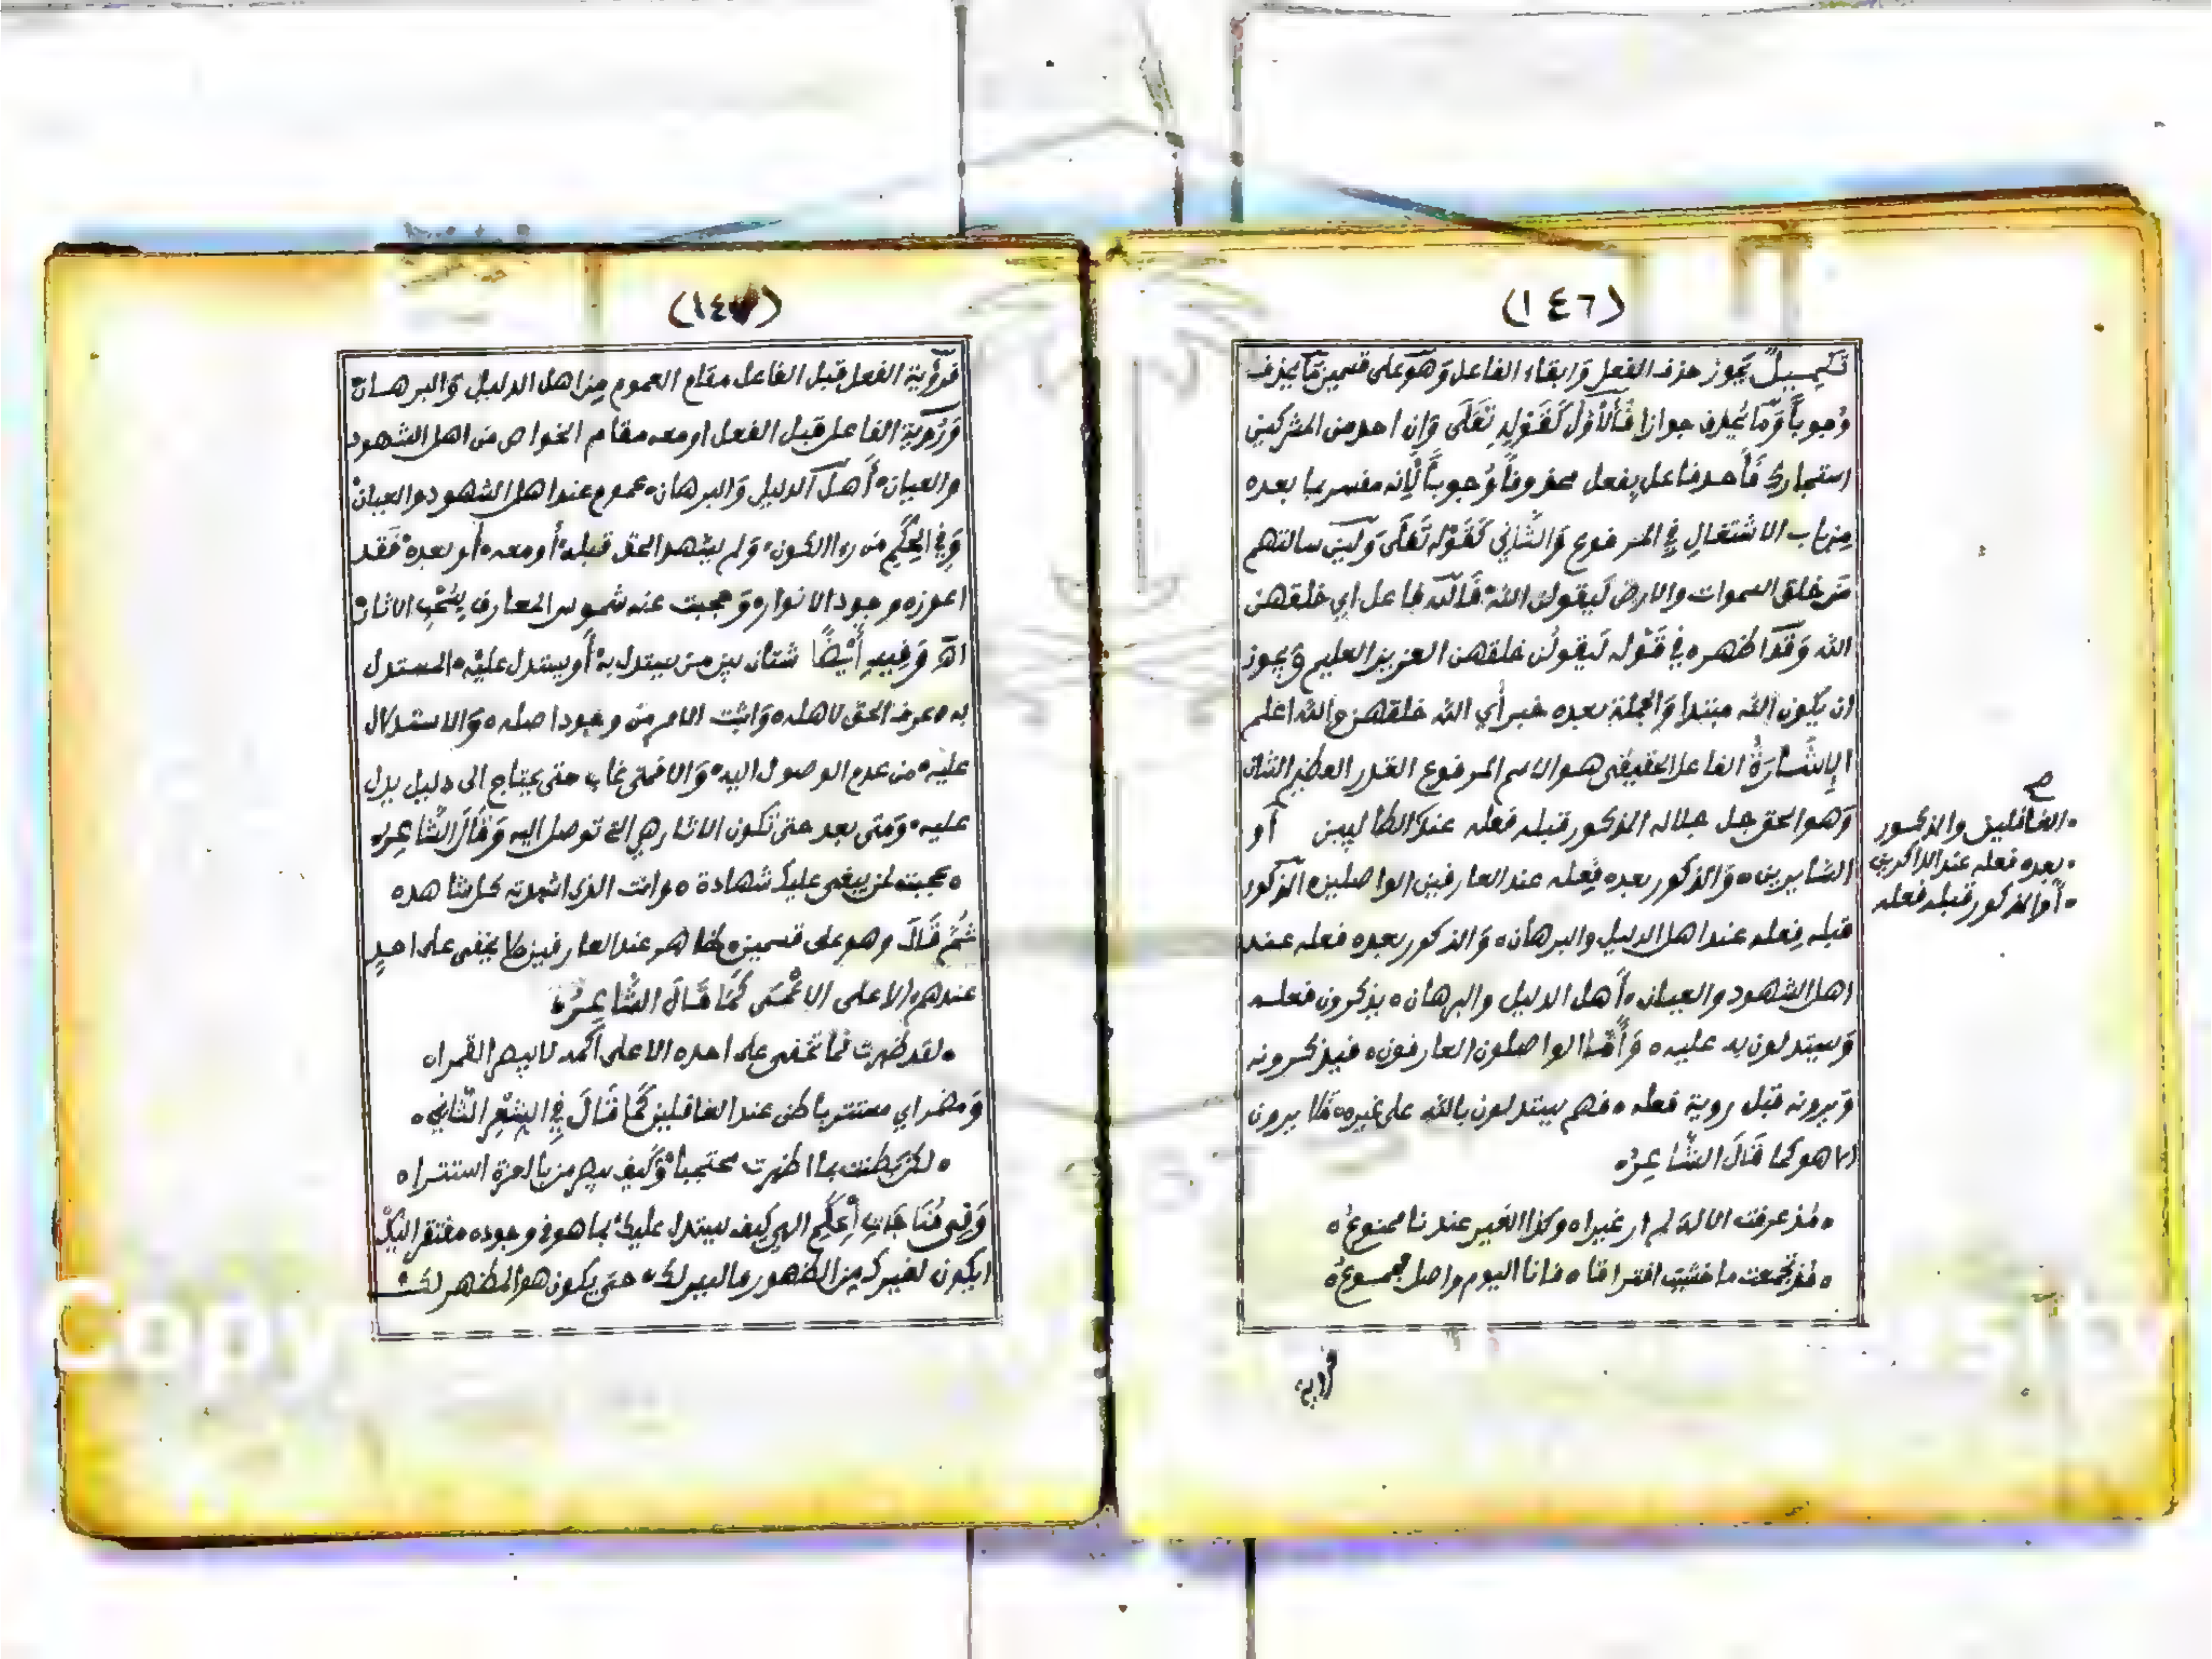 (١٤٦)
تكميل يجوز حذف الفعل وابقاء الفاعل وهو على قسمين ما يحذف
وجوباً وما يحذف جوازا فالأول كقوله تعلى وان احد من المشركين
استجارك فأحد فاعل بفعل محذوفاً وجوباً لأنه مفسر بما بعده
من باب الاشتغال في المرفوع والثاني كقوله تعلى ولئن سالتهم
من خلق السموات والارض ليقولن الله فالله فاعل اي خلقهن
الله وقد اظهره في قوله ليقولن خلقهن العزيز العليم ويجوز
ان يكون الله مبتدا والجملة بعده خبر أي الله خلقهن والله اعلم
الإشارة الفاعل الحقيقي هو الاسم المرفوع القدر العظيم الشان
وهو الحق جل جلاله المذكور قبله فعله عند الطالبين أو
السايرين ه والذكور بعده فعله عند العارفين الواصلين ه الذكور
قبله فعله عند اهل الدليل والبرهان ه والذكور بعده فعله عند
اهل الشهود والعيان ه أهل الدليل والبرهان ه يذكرون فعله
ويستدلون به عليه ه وأما الواصلون العارفون ه فيذكرونه
ويرونه قبل روية فعله ه فهم يستدلون بالله على غيره ه فلا يرون
الا هو كما قال الشاعر ه
ه مذ عرفت الاله لم ار غيرا ه وكذا الغير عندنا ممنوع ه
ه مذ تجمعت ما خشيت افتراقا ه فانا اليوم واصل مجموع ه
فرؤية
ه الغافلين والذكور
ه بعده فعله عند الذاكرين
ه أو المذكور قبله فعله
(١٤٧)
فرؤية الفعل قبل الفاعل مقام العموم من اهل الدليل والبرهان ه
ورؤية الفاعل قبل الفعل او معه مقام الخواص من اهل الشهود
والعيان ه أهل الدليل والبرهان ه عموم عند اهل الشهود والعيان ه
وفي الحكم من راا الكون ه ولم يشهد الحق قبله ه أو معه ه أو بعده ه فقد
اعوزه وجود الانوار ه وحجبت عنه شموس المعارف بسحب الاثار ه
اه وفيه أيضاً شتان بين من يستدل به ه أو يستدل عليه ه المستدل
به ه عرف الحق لاهله ه واثبت الامر من وجود اصله ه والاستدلال
عليه ه من عدم الوصول اليه ه والا فمتى غاب حتى يحتاج الى دليل يدل
عليه ه ومتى بعد حتى تكون الاثار هي التي توصل اليه وقال الشاعر ه
ه عجبت لمن يبغي عليك شهادة ه وانت الذي اشهدته كل شاهده
ثم قال وهو على قسمين ه ظاهر عند العارفين لا يخفى على احد
عندهم ه الا على الاعمى كما قال الشاعر ه
ه لقد ظهرت فما تخفى على احد ه الا على اكمه لا يبصر القمرا ه
ومضمر اي مستتر باطن عند الغافلين كما قال في الشعر الثاني ه
ه لكن بطنت بما اظهرت محتجبا ه وكيف يبصر من بالعزة استترا ه
وفي مناجات الحكم الهي كيف يستدل عليك ه بما هو في وجوده مفتقر اليك
ايكون لغيرك من الظهور ما ليس لك ه حتى يكون هو المظهر لك ه